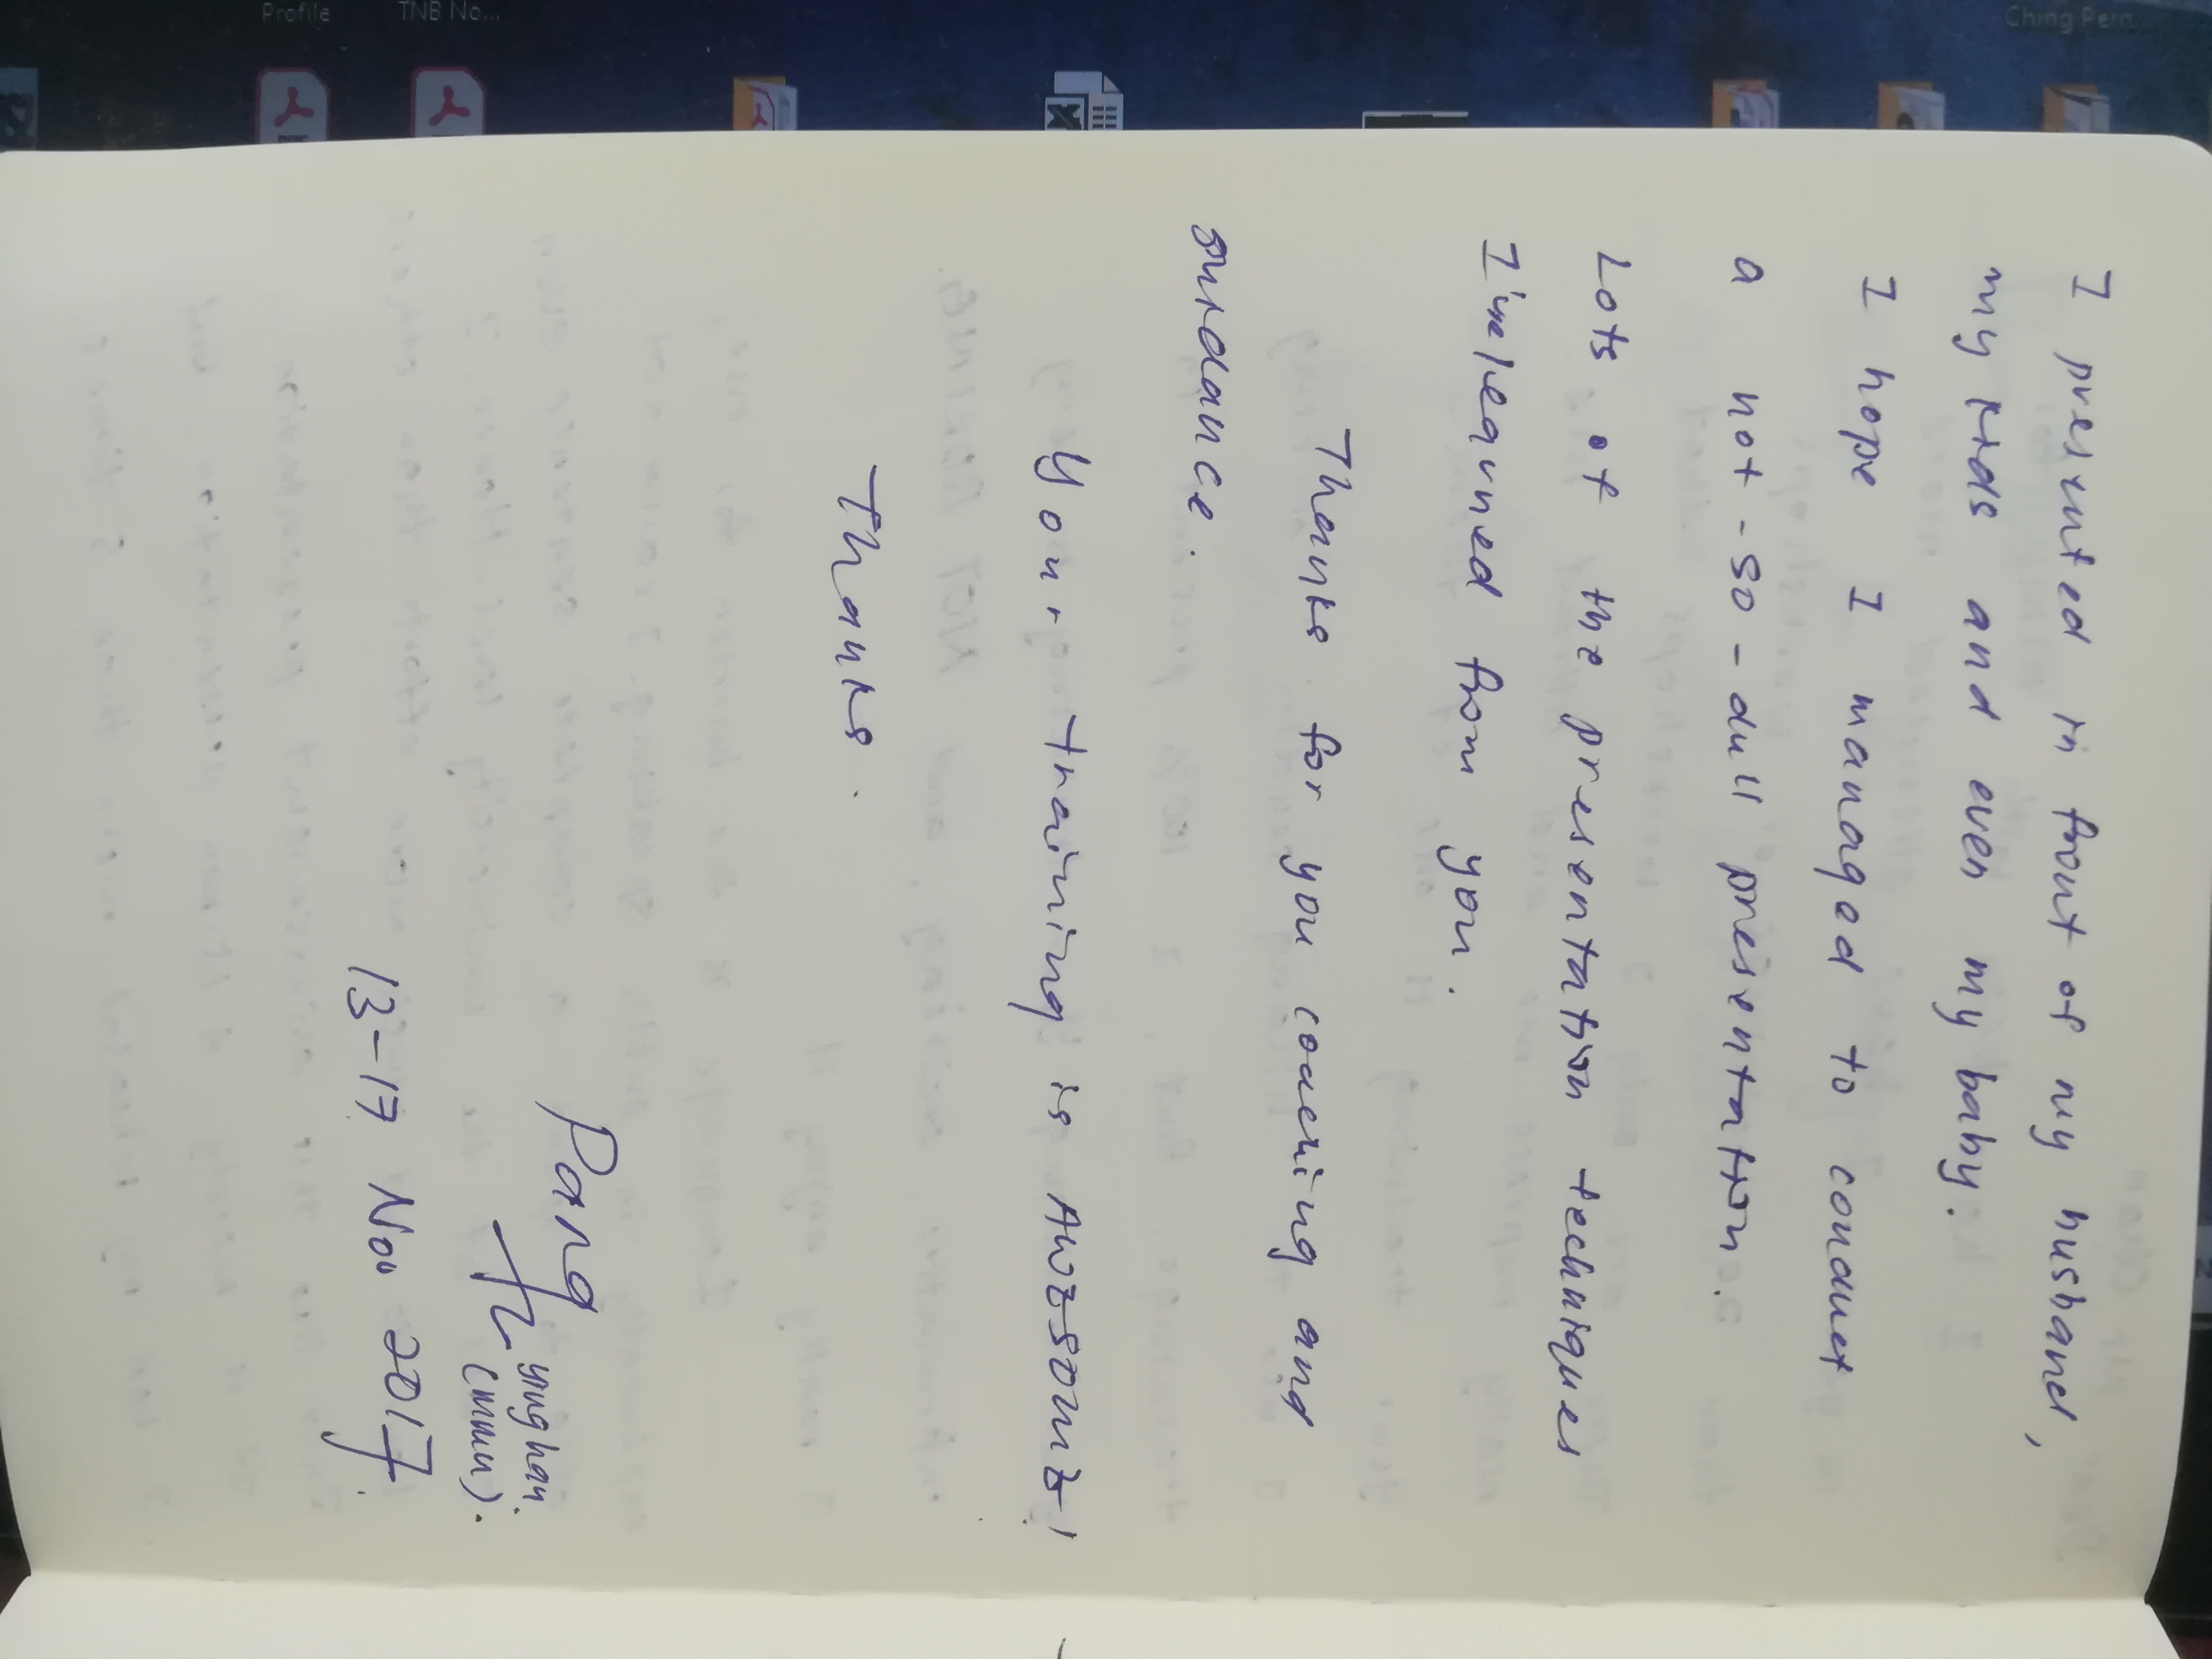 I presented in front of my husband,
my kids and even my baby.
I hope I managed to conduct
a not-so-dull presentation.
Lots of the presentation techniques
I learned from you.
Thanks for you coaching and
guidance.
Your training is Awesome!
Thanks.
Pang
ying han.
13-17 Nov 2017
Profile
TNB No...
Ching Pern...